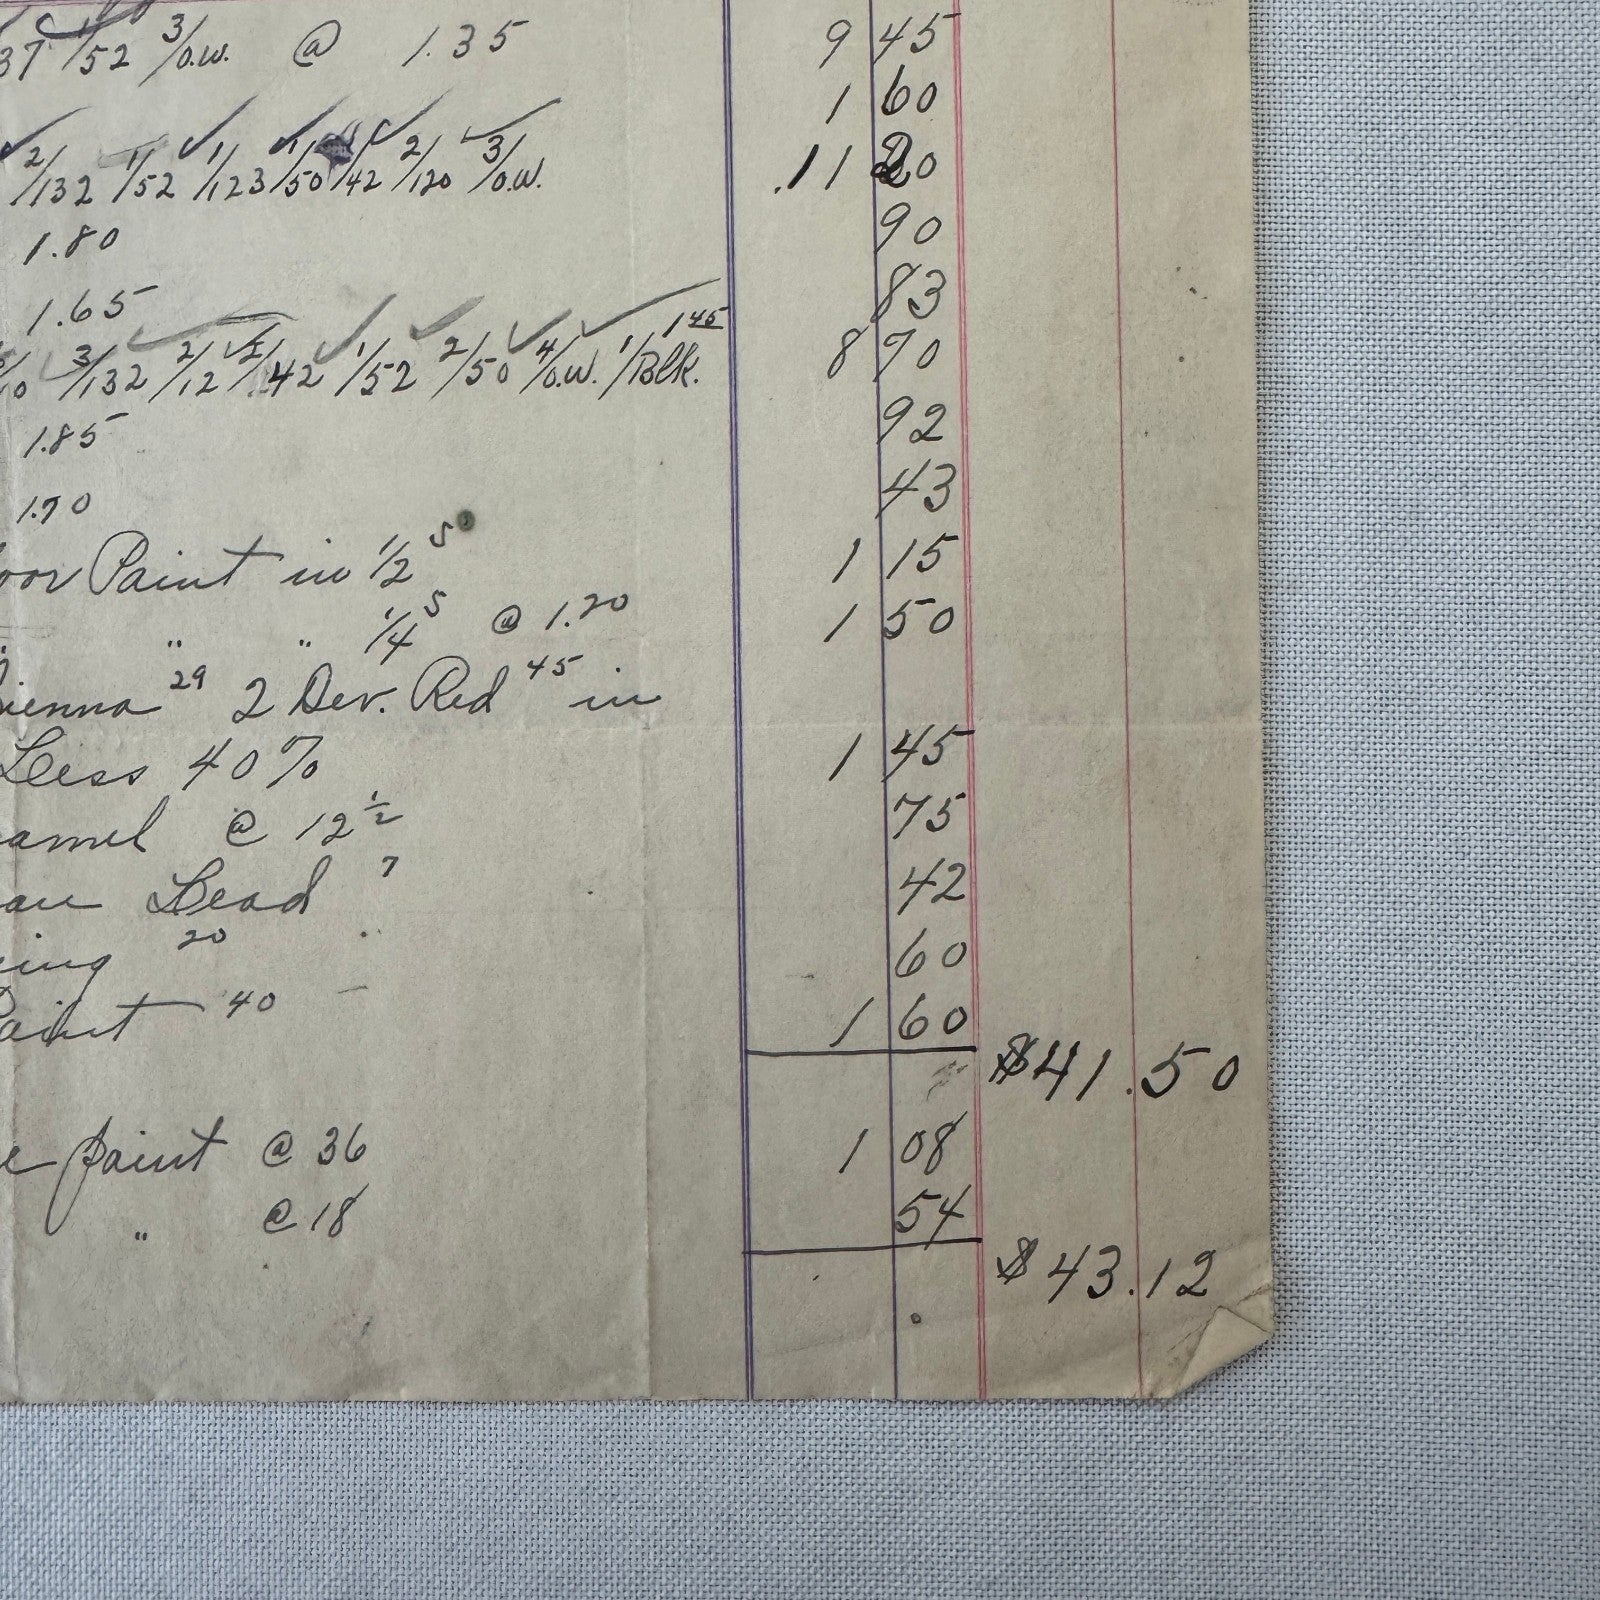 37 1/52 3/O.W. @ 1.35 9 45
1 60
2/132 1/52 1/123 1/50 1/42 2/120 3/O.W. .11 20
1.80 90
1.65 83
3/132 2/12 2/42 1/52 2/50 4/O.W. 1/Blk. 1 45 8 70
1.85 92
1.70 43
oor Paint in 1/2 s 1 15
" " 1/4 s @ 1.20 1 50
ienna 29 2 Dev. Red 45 in
Less 40% 1 45
amel @ 12 1/2 75
an Lead 7 42
ing 20 60
Paint 40 1 60
$41.50
e paint @ 36 1 08
" @ 18 54
$43.12